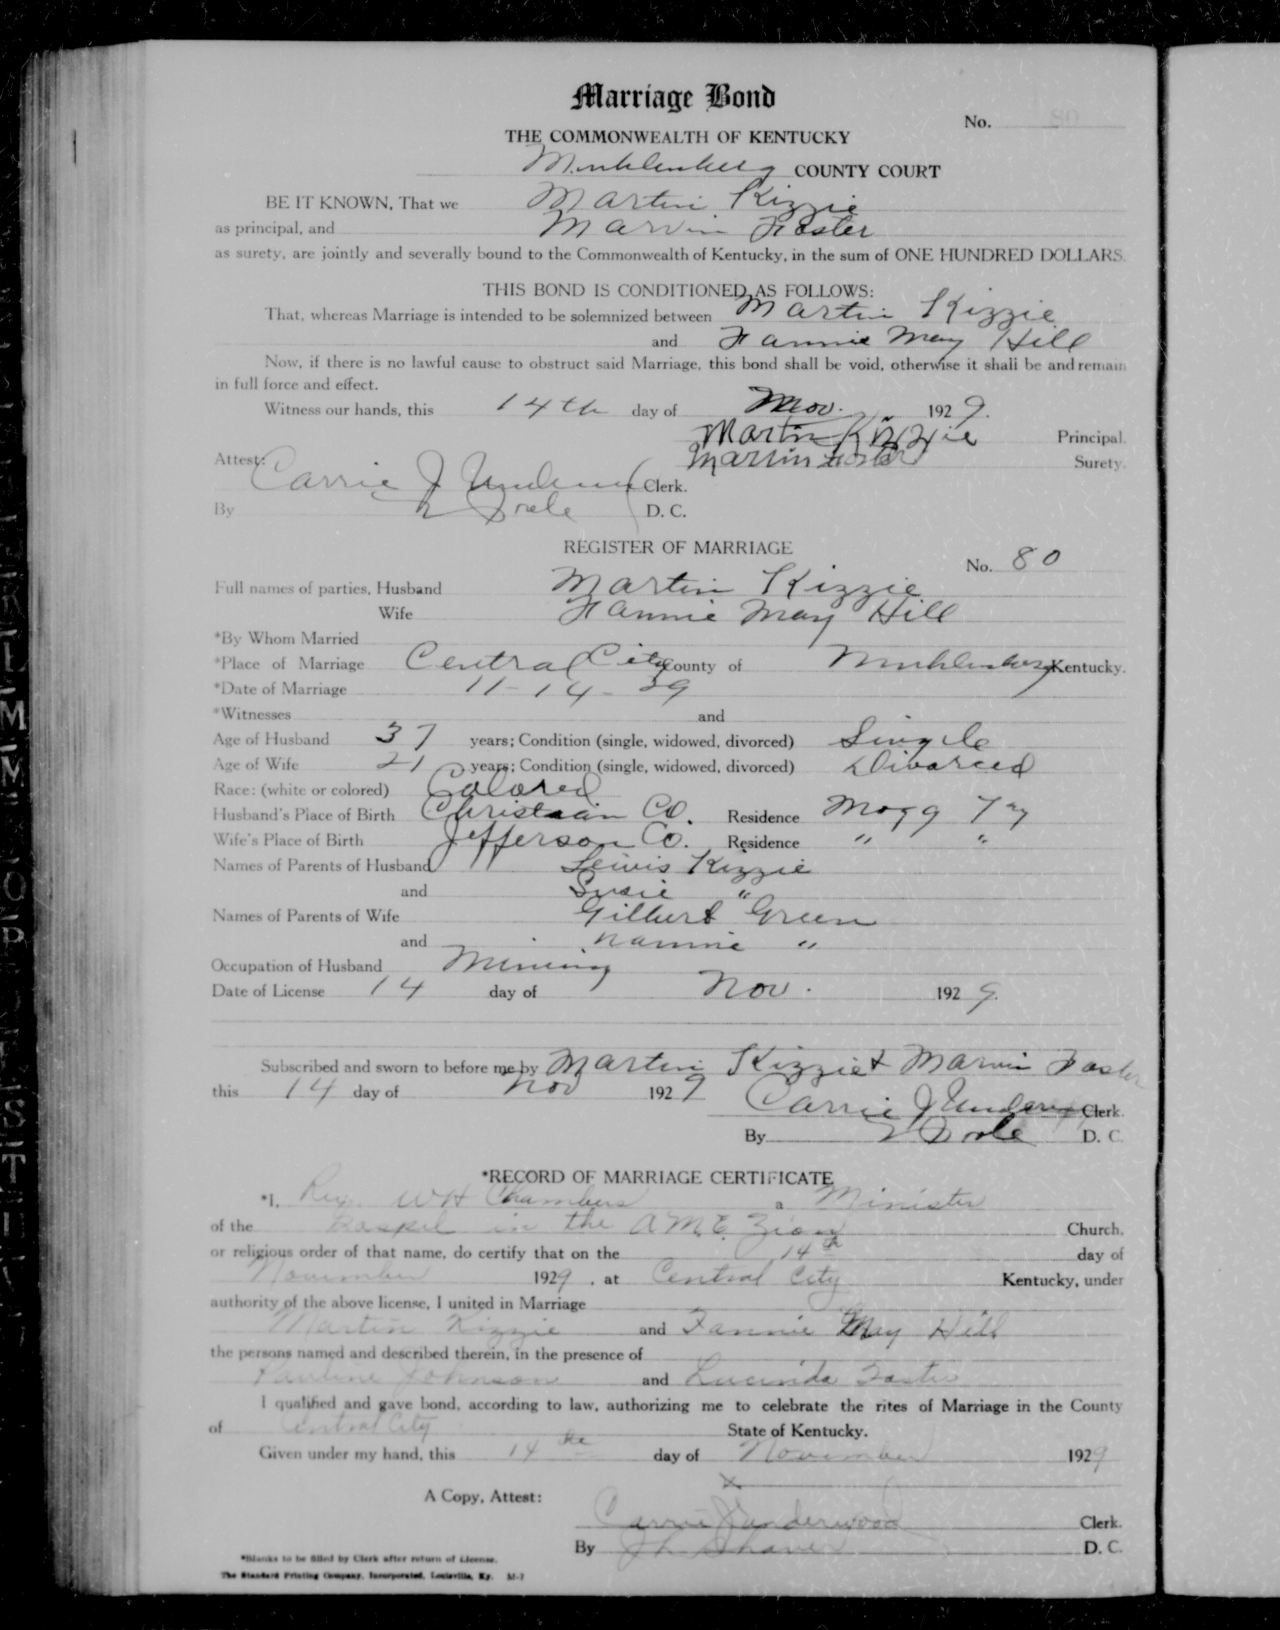 Marriage Bond
No. 80
THE COMMONWEALTH OF KENTUCKY
Muhlenberg COUNTY COURT
BE IT KNOWN, That we Martin Kizzie
as principal, and Marvin Foster
as surety, are jointly and severally bound to the Commonwealth of Kentucky, in the sum of ONE HUNDRED DOLLARS.
THIS BOND IS CONDITIONED AS FOLLOWS:
That, whereas Marriage is intended to be solemnized between Martin Kizzie
and Fannie May Hill
Now, if there is no lawful cause to obstruct said Marriage, this bond shall be void, otherwise it shall be and remain
in full force and effect.
Witness our hands, this 14th day of Nov. 1929.
Martin Kizzie Principal.
Attest: Marvin Foster Surety.
Carrie J Underwood Clerk.
By D. C.
REGISTER OF MARRIAGE
No. 80
Full names of parties, Husband Martin Kizzie
Wife Fannie May Hill
*By Whom Married
*Place of Marriage Central City County of Muhlenberg Kentucky.
*Date of Marriage 11-14-29
*Witnesses and
Age of Husband 37 years; Condition (single, widowed, divorced) Single
Age of Wife 21 years; Condition (single, widowed, divorced) Divorced
Race: (white or colored) Colored
Husband's Place of Birth Christain Co. Residence Mogg Ky
Wife's Place of Birth Jefferson Co. Residence " "
Names of Parents of Husband Lewis Kizzie
and Susie "
Names of Parents of Wife Gilbert Green
and Nannie "
Occupation of Husband Mining
Date of License 14 day of Nov. 1929.
Subscribed and sworn to before me by Martin Kizzie & Marvin Foster
this 14 day of Nov 1929
Carrie J Underwood Clerk.
By D. C.
*RECORD OF MARRIAGE CERTIFICATE
*I, Rev. W H Chambers a Minister
of the Gospel in the A.M.E. Zion Church,
or religious order of that name, do certify that on the 14th day of
November 1929, at Central City Kentucky, under
authority of the above license, I united in Marriage
Martin Kizzie and Fannie May Hill
the persons named and described therein, in the presence of
Pauline Johnson and Lucinda Foster
I qualified and gave bond, according to law, authorizing me to celebrate the rites of Marriage in the County
of Central City State of Kentucky.
Given under my hand, this 14th day of November 1929
X
A Copy, Attest:
Carrie J Underwood Clerk.
By J L Shaver D. C.
*Blanks to be filled by Clerk after return of License.
The Standard Printing Company, Incorporated, Louisville, Ky. M-7